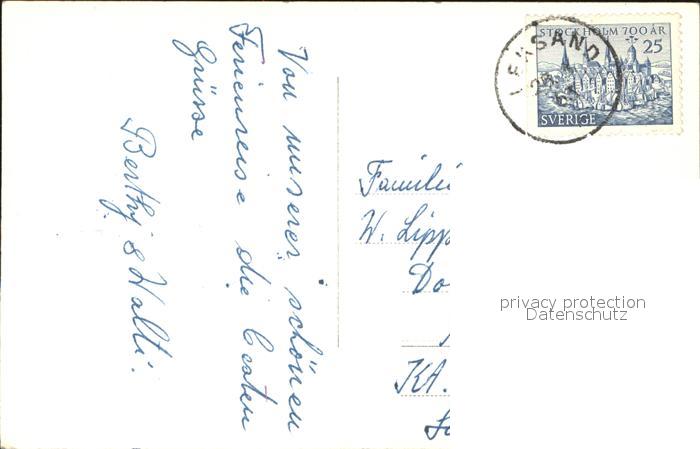 Von unserer schönen
Ferienreise die besten
Grüsse
Berthy & Walti.
Familie
W. Lipp
Do
KA.
STOCKHOLM 700 ÅR
25
SVERIGE
LEKSAND
privacy protection
Datenschutz